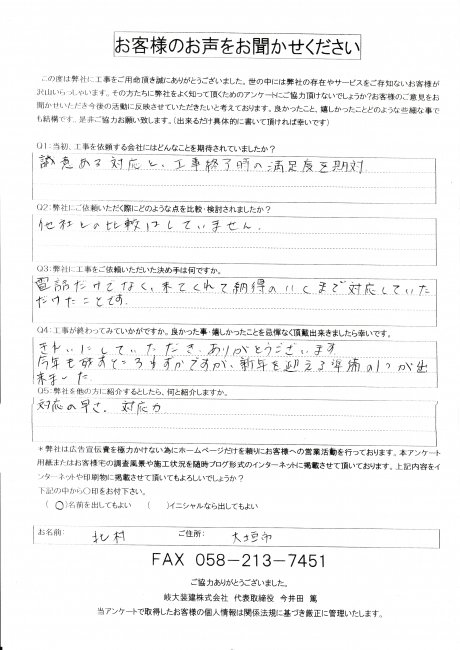 お客様のお声をお聞かせください
この度は弊社に工事をご用命頂き誠にありがとうございました。世の中には弊社の存在やサービスをご存知ないお客様が
沢山いらっしゃいます。その方たちに弊社をよく知って頂くためのアンケートにご協力頂けないでしょうか?お客様のご意見をお
聞かせいただき今後の活動に反映させていただきたいと考えております。良かったこと、嬉しかったことどのような些細な事で
も結構です。是非ご協力お願い致します。(出来るだけ具体的に書いて頂ければ幸いです)
Q1:当初、工事を依頼する会社にはどんなことを期待されていましたか?
誠意ある対応と、工事終了時の満足度を期対
Q2:弊社にご依頼いただく際にどのような点を比較・検討されましたか?
他社との比較はしていません.
Q3:弊社に工事をご依頼いただいた決め手は何ですか。
電話だけでなく、来てくれて納得のいくまで対応していた
だけたことです.
Q4:工事が終わってみていかがですか。良かった事・嬉しかったことを忌憚なく頂戴出来ましたら幸いです。
きれいにしていただき、ありがとうございます
今年も残すところわずかですが、新年を迎える準備の1つが出
来ました.
Q5:弊社を他の方に紹介するとしたら、何と紹介しますか。
対応の早さ、対応力
*弊社は広告宣伝費を極力かけない為にホームページだけを頼りにお客様への営業活動を行っております。本アンケート
用紙またはお客様宅の調査風景や施工状況を随時ブログ形式のインターネットに掲載させて頂いております。上記内容をイ
ンターネットや印刷物に掲載させて頂いてもよろしいでしょうか?
下記の中から○印をお付下さい。
(○)名前を出してもよい ( )イニシャルなら出してもよい
お名前: 北村 ご住所: 大垣市
FAX 058-213-7451
ご協力ありがとうございました。
岐大装建株式会社 代表取締役 今井田 篤
当アンケートで取得したお客様の個人情報は関係法規に基づき厳正に管理いたします。